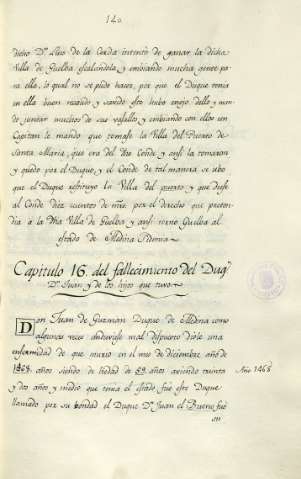 140
dicho Dn. Luis de la Cerda intento de ganar la dicha
Villa de Guelba escalandola y embiando mucha gente pa
ra ello, lo qual no se pudo hacer, por que el Duque tenia
en ella buen recaudo y savido esto hubo enojo dello y man
do juntar muchos de sus vasallos y embiando con ellos un
Capitan le mando que tomase la Villa del Puerto de
Santa Maria, que era del dho Conde y ansi la tomaron
y quedo por el Duque, y el Conde de tal manera se ubo
que el Duque restituyo la Villa del puerto y que diese
al Conde diez cuentos de mrs. por el derecho que preten
dia a la dha Villa de Guelba y ansi torno Guelba al
estado de Medina Sidonia
Capitulo 16. del fallecimiento del Duqe
Dn. Juan y de los hijos que tuvo
Don Juan de Guzman Duque de Medina como
algunas veces anduviese mal dispuesto diole una
enfermedad de que murio en el mes de diciembre año de
1468. años siendo de hedad de 58 años aviendo treinta
y dos años y medio que tenia el estado, fue este Duque
llamado por su bondad el Duque Dn. Juan el Bueno, fue
Año 1468